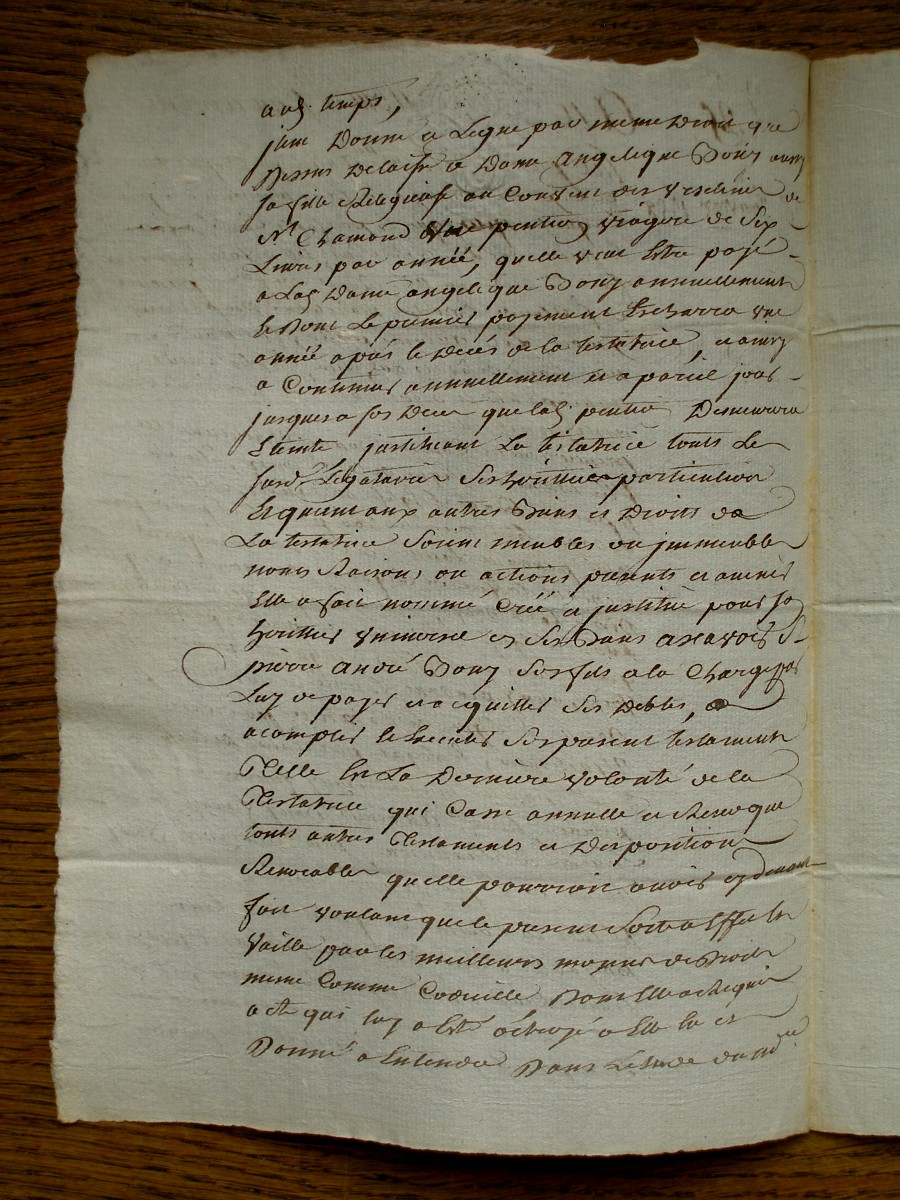 aud. temps,
Item Donne et Legue par meme Droit que
Dessus Delaisse a Dame angelique Bouy aussy
sa fille Religieuse au Couvent des Urselines de
St Chamond Une pention Viagere de Six
Livres par année, quelle veut Estre payé
a Lad. Dame angelique Bouy annuellement
Et Dont Le premier payement Escherra une
année aprés le Décés de la testatrice, et ainsy
a Continuer annuellement et a pareil jour
jusques a son Deces que lad. pention Demeurera
Eteinte justituant La testatrice touts Les
susd. Legataires Ses heritiers particuliers
Et quant aux autres Biens et Droits de
La testatrice Soient meubles ou jmmeubles
noms Raisons ou actions presents et avenir
Elle a fait nommé Créé et justitué pour son
heritier Universel en Ses Biens a scavoir Sr
pierre André Bouy Son fils a la Charge par
Luy de payer et acquitter Ses Debtes, et
acomplir Et Executer Son present testament
Telle Est La Derniere volonté de la
Testatrice qui Casse annulle et Revoque
touts autres Testaments et Dispositions
Revocables quelle pourroit avoir cy devant
fait voulant que le present Sorte a Effet Et
Vaille par les meilleurs moyens de Droit
meme Comme Codicille Dont Elle a Requis
acte qui luy a Esté octroyé a Elle lu et
Donné a Entendre Dans L'etude du